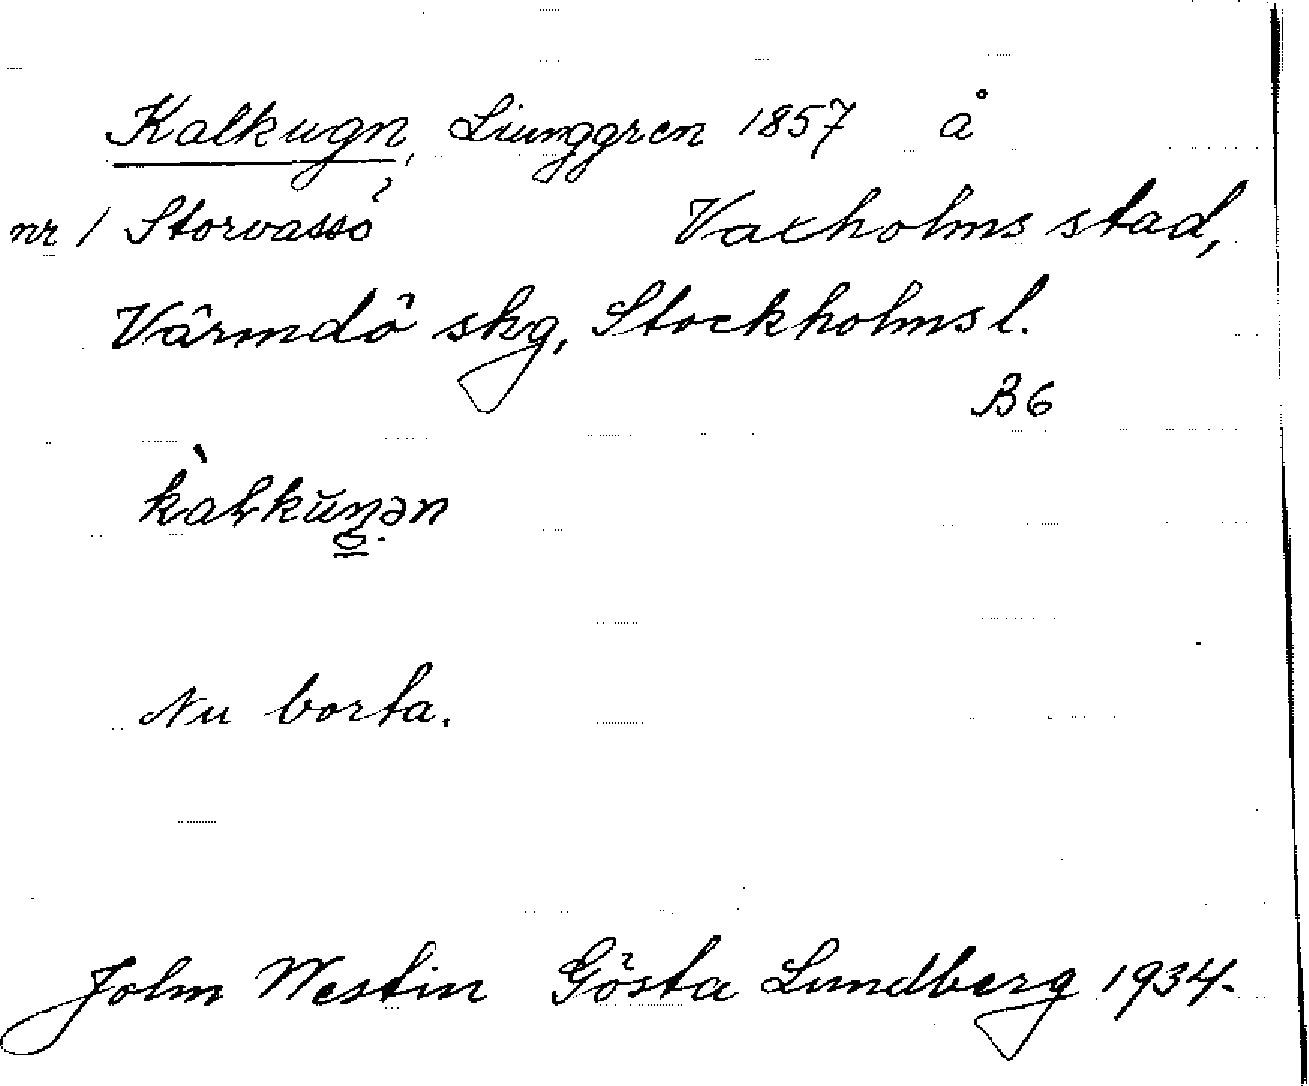 Kalkugn, Liunggren 1857 å
nr 1 Storvassö Vaxholms stad,
Värmdö skg, Stockholms l.
B6
Nu borta.
John Westin Gösta Lundberg 1934.